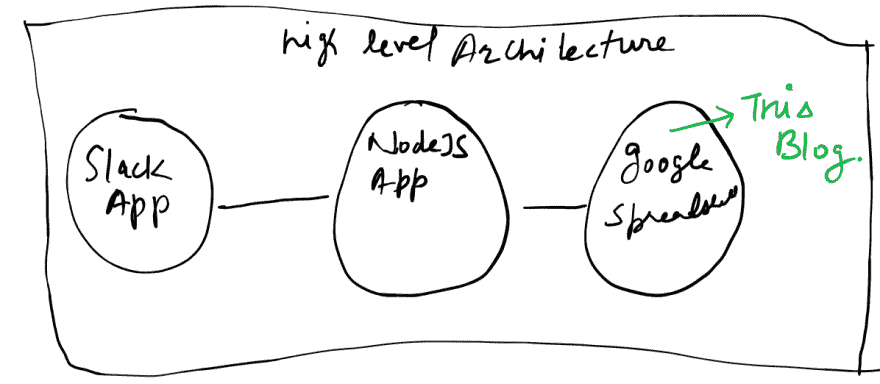 high level Architecture
Slack
App
NodeJS
App
google
Spreadsheet
This
Blog.